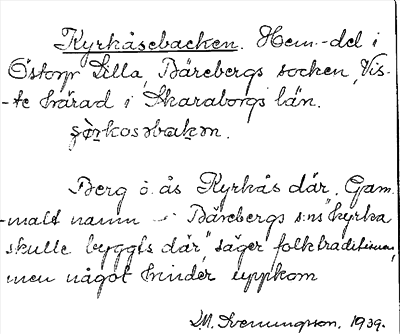 Kyrkåsebacken. Hem.-del i
Östorp Lilla, Bärebergs socken, Vis-
-te härad i Skaraborgs län.
Berg o. ås Kyrkås där. Gam-
-malt namn - Bärebergs s:ns "kyrka
skulle byggts där", säger folktraditionen,
men något hinder uppkom
J.M. Svenungson. 1939.